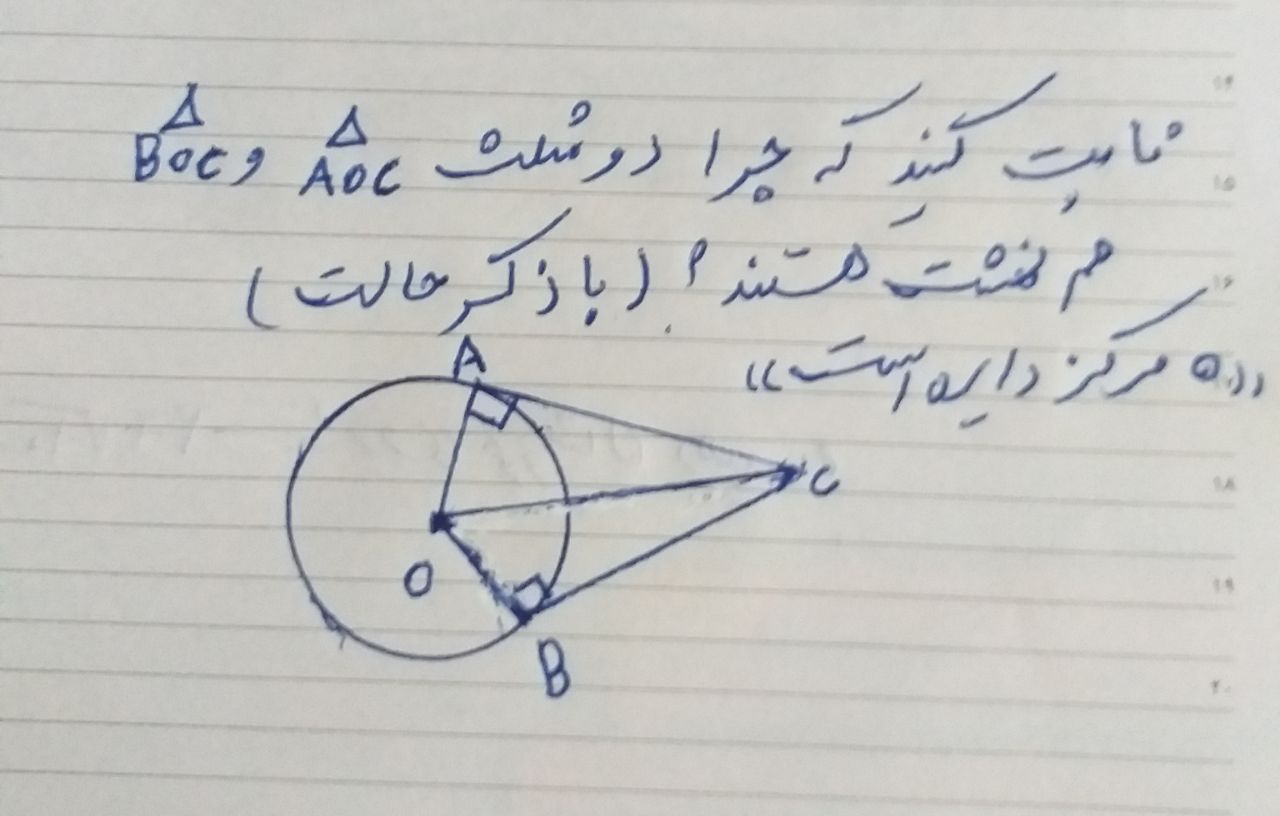 ثابت کنید که چرا دو مثلث AOC و BOC
هم نهشت هستند؟ (با ذکر حالت)
«O مرکز دایره است»
A
C
O
B